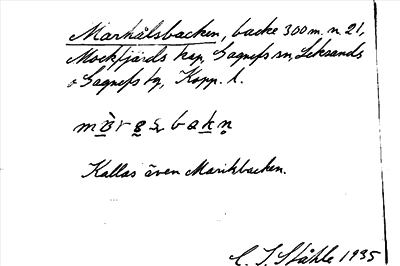 Marhålsbacken, backe 300 m. n. 21,
Mockfjärds kap, Gagnefs sn, Leksands
o Gagnefs tg, Kopp. l.
Kallas även Marikbacken.
C. I. Ståhle 1935